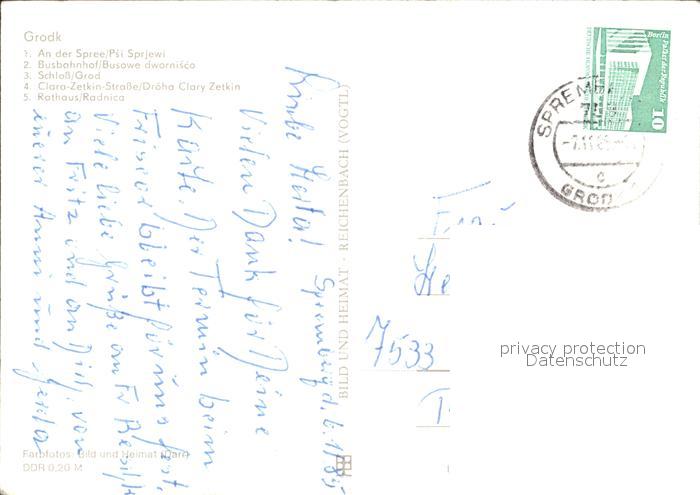 Grodk
1. An der Spree/Pśi Sprjewi
2. Busbahnhof/Busowe dwornišćo
3. Schloß/Grod
4. Clara-Zetkin-Straße/Dróha Clary Zetkin
5. Rathaus/Radnica
Spremberg, d. 6.11.85
Liebe Herta!
Vielen Dank für Deine
Karte. Der Termin beim
Friseur bleibt für uns fest.
Viele liebe Grüße an Fr.
an Fritz und an Dich, von
Anni und Gerda
BILD UND HEIMAT · REICHENBACH (VOGTL)
Farbfotos: Bild und Heimat (Darr)
DDR 0,20 M
Berlin Palast der Republik
10
SPREMBERG
GRODK
Frau
He
7533
T
privacy protection
Datenschutz